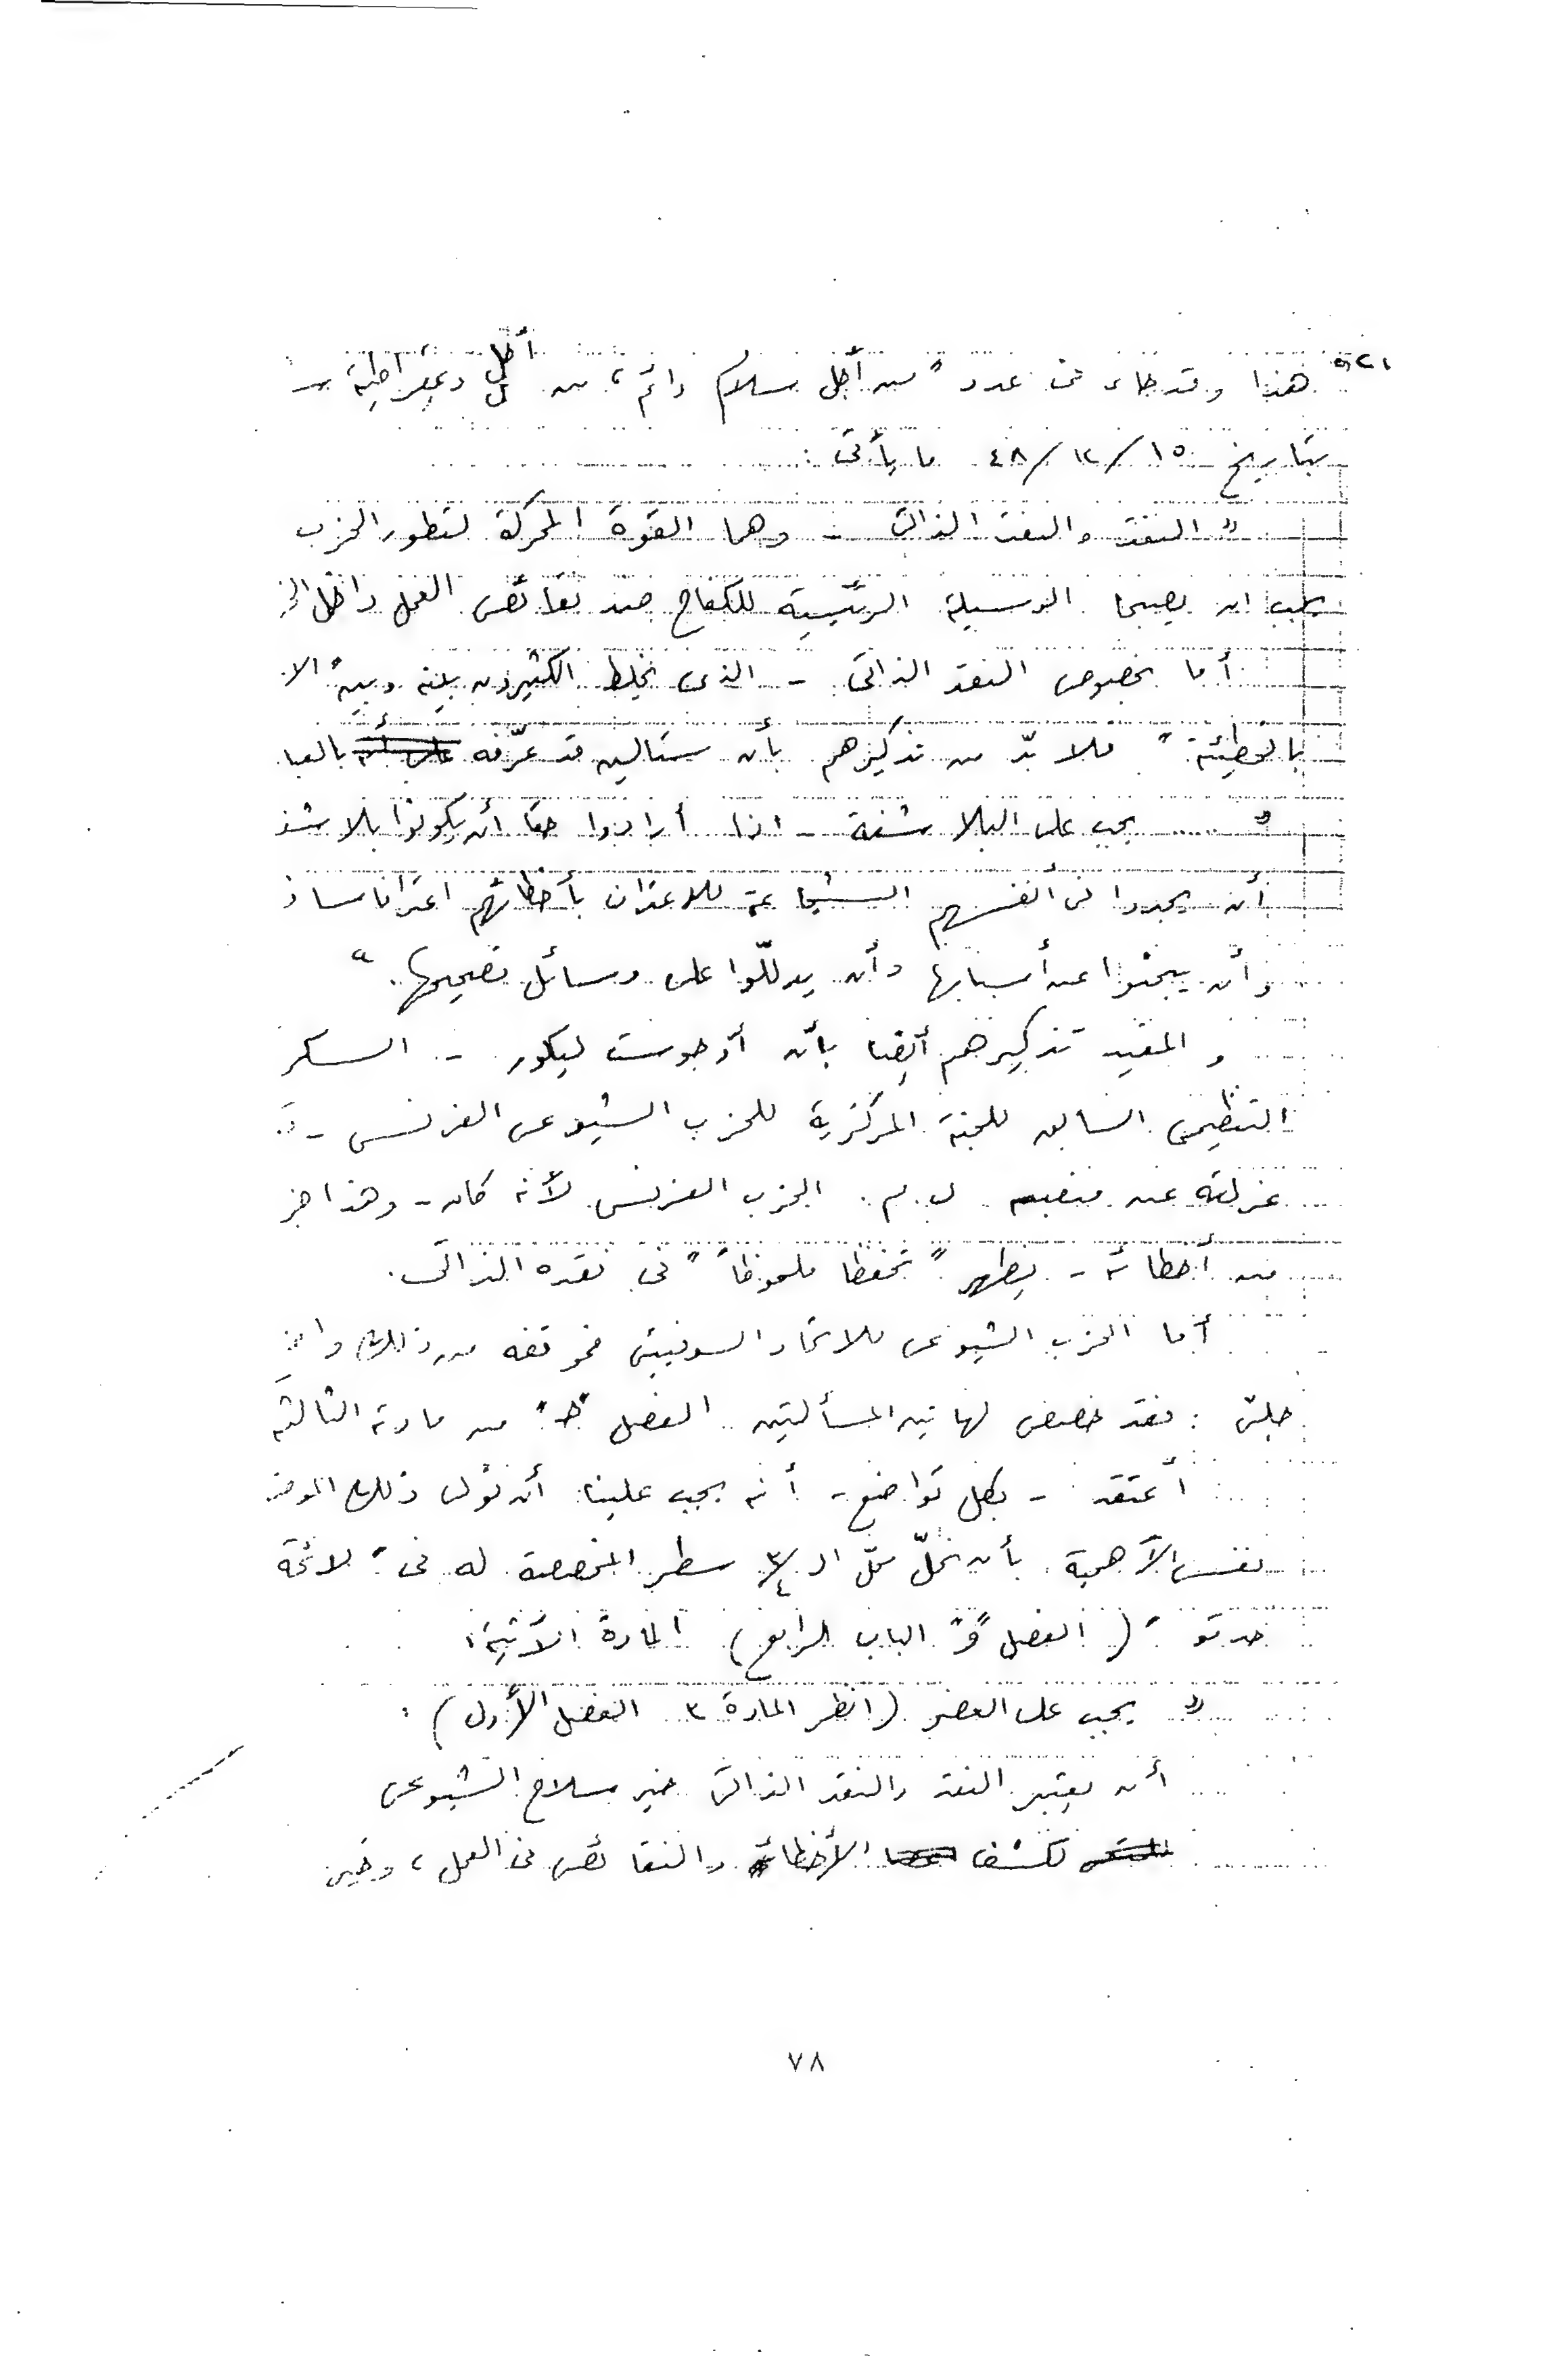 هذا وقد جاء فى عدد "من أجل سلام دائم، من أجل ديمقراطية
بتاريخ ١٥/١٢/٤٨ ما يأتى :
" النقد والنقد الذاتى - وهما القوة المحركة لتطور الحزب
يجب ان يصبحا الوسيلة الرئيسية للكفاح ضد نقائص العمل داخل
أما بخصوص النقد الذاتى - الذى يخلط الكثيرون بينه وبين "الا
بالخطيئة" فلا بدّ من تذكيرهم بأن ستالين قد عرّفه بالعبا
" ..... يجب على البلاشفة - اذا أرادوا حقا أن يكونوا بلاشفـ
أن يجدوا فى أنفسهم الشجاعة للاعتراف بأخطائهم اعترافا
وأن يبحثوا عن أسبابها وأن يدللّوا على وسائل تصحيحها. "
و المفيد تذكيرهم أيضا بأن أوجوست ليكور - السكر
التنظيمى السابق للجنة المركزية للحزب الشيوعى الفرنسى -
عزلته عن منصبه ل.م. الحزب الفرنسى لأنه كان - وهذا جز
من أخطائه - يظهر "تحفظا ملحوظا" فى نقده الذاتى.
أما الحزب الشيوعى للاتحاد السوفييتى فموقفه من ذلك
جلىّ : فقد خصص لهاتين المسألتين الفصل "ط" من مادته الثالثة
أعتقد - بكل تواضع - أنه يجب علينا أن نولى ذلك الموضـ
نفس الأهمية بأن نحلّ محلّ الـ ٣/٤ سطر المخصصة له فى " لائحة
حدتو " ( الفصل "و" الباب الرابع ) المادة الآتية :
" يجب على العضو (انظر المادة ٣ الفصل الأول) :
أن يعتبر النقد والنقد الذاتى خير سلاح الشيوعى
لكشف الأخطاء والنقائص فى العمل، وخير
٧٨